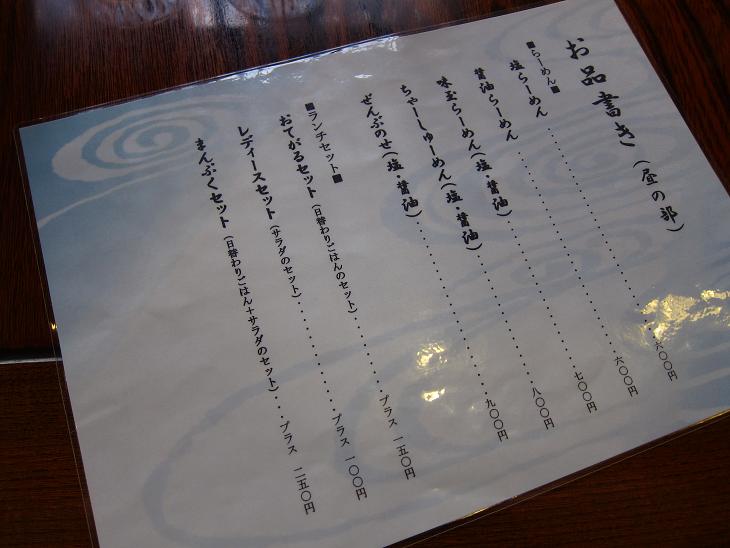 お品書き（昼の部）
■らーめん■
塩らーめん・・・・・・・・・・・・・・・・・・・・六〇〇円
醤油らーめん・・・・・・・・・・・・・・・・・・六〇〇円
味玉らーめん（塩・醤油）・・・・・・・・・・・・七〇〇円
ちゃーしゅーめん（塩・醤油）・・・・・・・・・・八〇〇円
ぜんぶのせ（塩・醤油）・・・・・・・・・・・・・九〇〇円
■ランチセット■
おてがるセット（日替わりごはんのセット）・・・・・・・・プラス 一五〇円
レディースセット（サラダのセット）・・・・・・・・・・プラス 一〇〇円
まんぷくセット（日替わりごはん＋サラダのセット）・・・プラス 二五〇円